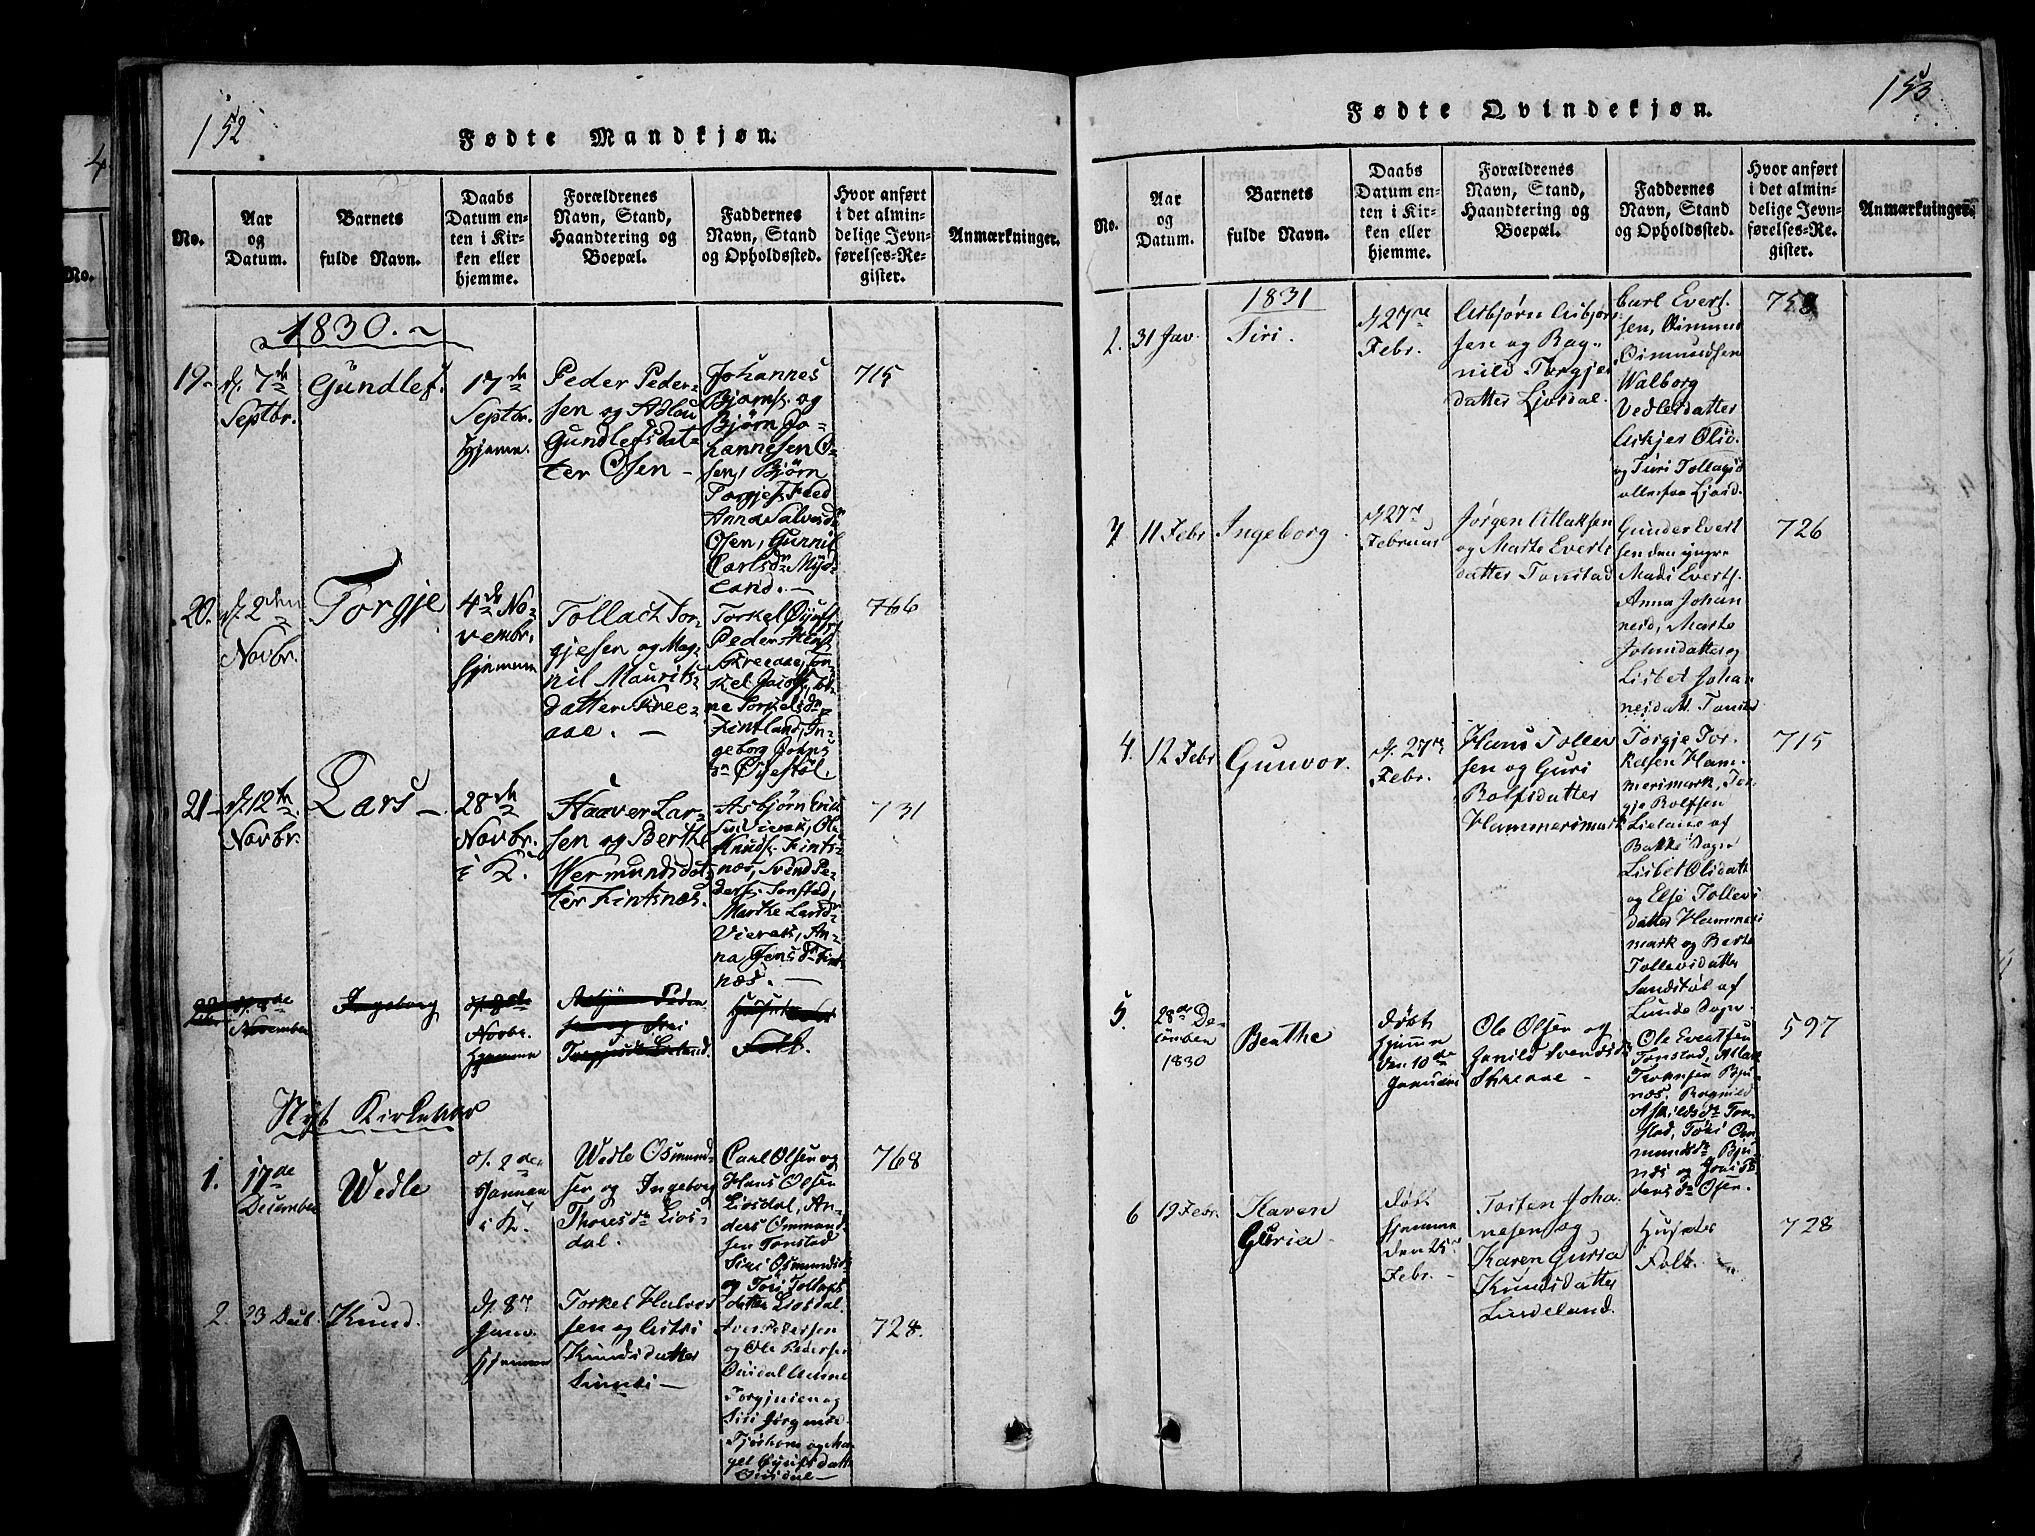 152
Fødte Mandkjøn.
No.
Aar og Datum.
Barnets fulde Navn.
Daabs Datum enten i Kirken eller hjemme.
Forældrenes Navn, Stand, Haandtering og Boepæl.
Faddernes Navn, Stand og Opholdssted.
Hvor anført i det almindelige Jevnførelses-Register.
Anmærkninger.
1830.
19.
d. 7de
Septbr.
Gundlef.
17de
Septbr.
Hjemme.
Peder Peder-
sen og Adlou
Gundlefsdat-
ter Osen
Johannes
Bjørns. og
Bjørn Jo-
hannesen O-
sen, Bjørn
Torgjes. Fied
Anna Salvesd.
Osen, Gunnil
Carlsd. Myd-
land.
715
20.
d. 2den
Novbr.
Torgje
4de No-
vembr.
hjemme
Tollach Tor-
gjesen og Mag-
nil Maurits-
datter Skree-
aae.
Torkel
Peder
Skreeaae, Tor-
kel Jacobs.
ne Torkelsdr
Fintland, In-
geborg
Øyestøl.
766
21
d. 12te
Novbr.
Lars
28de
Novbr.
i K.
Haaver Lar-
sen og Berthe
Wermundsdat-
ter Fintsnæs.
Asbjørn Eriks
sen Vierak, Ole
Knuds. Fints-
næs, Svend Pe-
ders. Tonstad,
Marthe Larsdr
Vierak, An-
na Jensdr Fint-
næs.
731
November
Ingeborg
Novbr.
Hjemme
Peder
Folk.
Nyt Kirkeaar
1.
17de
December
Wedle
d. 2den
Januar
i K.
Wedle Osmund-
sen og Ingeborg
Thoresdr Lios-
dal.
Carl Olsen og
Hans Olsen
Liosdal, An-
ders Ommund
sen Tonstad
Siri Osmundsdr
og Töri Tollags
datter Liosdal.
768
2.
23 Decbr.
Knud.
d. 8de
Janv.
Hjemme
Torkel Halvor
sen og Astri
Knudsdatter
Sinnes
Aven Pedersen
og Ole Pedersen
Ousdal
Torgjusen og
Siri Jørgensd.
Tjørhom og Ma-
Ousdal
728.
153
Fødte Qvindekjøn.
No.
Aar og Datum.
Barnets fulde Navn.
Daabs Datum enten i Kirken eller hjemme.
Forældrenes Navn, Stand, Haandtering og Boepæl.
Faddernes Navn, Stand og Opholdssted.
Hvor anført i det almindelige Jevnførelses-Register.
Anmærkninger.
1831
2.
31 Jav.
Siri.
d 27de
Febr.
Asbjørn Asbjørn
sen og Rag-
nild Torgjes
datter Ljosdal.
Carl Evert-
sen, Osmund
Osmundsen
Walborg
Vedlesdatter
Askjer Olsd.
og Turi Tollagsd
alle fra Ljosd.
758
11 Febr
Ingeborg
d 27de
Februar
Jørgen Atlaksen
og Marte Everts
datter Tonstad
Gunder Evert
sen den yngre
Mads Everts.
Anna Johan
nesd, Marte
Johnsdatter og
Lisbet Johan
nesdatt. Tonstad
726
4.
12 Febr
Gunvor.
d. 27de
Febr.
Hans Tollev
sen og Guri
Rolfsdatter
Hammersmark
Torgje Tor-
kelsen Ham-
mersmark, Tor-
gje Rolfsen
Lieland af
Bakke Sogn
Lisbet Olsdatt
og Else Tollevs
datter Hammers
mark og Berte
Tollevsdatter
Sandstøl af
Lunde Sogn.
715
5.
28de De-
cember
1830
Berthe
Døbt
Hjemme
den 10de
Januar
Ole Olsen og
Gunild Svendsdr
Skreaae
Ole Evertsen
Tonstad, Atlak
Tronsen Bju-
næs, Ragnild
Askildsdr Ton-
stad, Töri Om-
mundsdr Bju-
næs og Joni P.
dersdr Osen.
597
6
19 Febr.
Karen
Guria
Døbt
Hjemme
den 25de
Febr.
Torsten Joha-
nesen og
Karen Guria
Knudsdatter
Lindeland.
Husets
Folk.
728